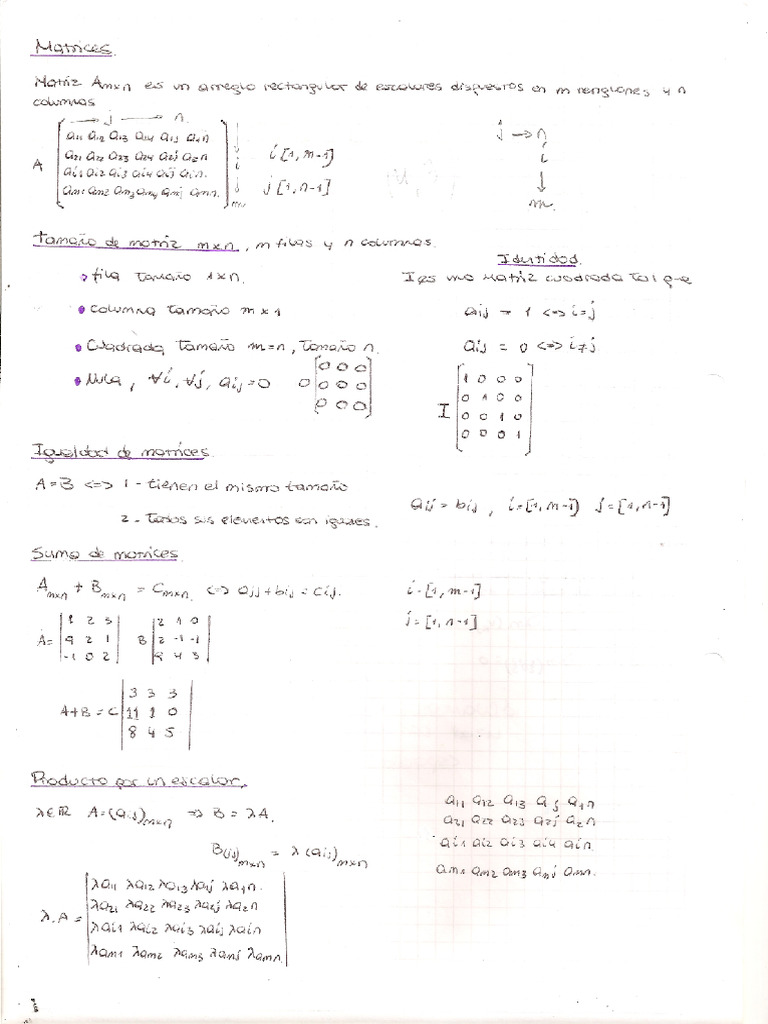 Matrices.
Matriz Amxn es un arreglo rectangular de escalares dispuestos en m renglones y n
columnas
→ j → n.
a11 a12 a13 a14 aij a1n
a21 a22 a23 a24 a2j a2n
A
ai1 ai2 ai3 ai4 aij ain.
am1 am2 am3 am4 amj amn.
i
m
i [1, m-1]
j [1, n-1]
j → n
i
↓
m.
Tamaño de matriz mxn, m filas y n columnas.
• fila tamaño 1xn.
• columna tamaño mx1
• Cuadrada, tamaño m=n, tamaño n.
• Nula, ∀i, ∀j, aij=0
0
0 0 0
0 0 0
0 0 0
Identidad.
I es una Matriz cuadrada tal que
aij = 1 <=> i=j
aij = 0 <=> i≠j
I
1 0 0 0
0 1 0 0
0 0 1 0
0 0 0 1
Igualdad de matrices.
A=B <=> 1 - tienen el mismo tamaño
2 - Todos sus elementos son iguales.
aij = bij, i=[1,m-1) j=[1,n-1]
Suma de matrices.
Amxn + Bmxn = Cmxn. <=> aij+bij = cij.
i=[1, m-1]
j=[1, n-1]
A=
1 2 3
9 2 1
-1 0 2
B
2 1 0
2 -1 -1
9 4 3
A+B = C
3 3 3
11 1 0
8 4 5
Producto por un escalar.
λ∈ℝ A=(aij)mxn => B = λA.
B(ij)mxn = λ(aij)mxn
λ.A =
λa11 λa12 λa13 λaij λa1n.
λa21 λa22 λa23 λa2j λa2n
λai1 λai2 λai3 λaij λain
λam1 λam2 λam3 λamj λamn.
a11 a12 a13 aj a1n
a21 a22 a23 a2j a2n
ai1 ai2 ai3 ai4 ain.
am1 am2 am3 amj amn.